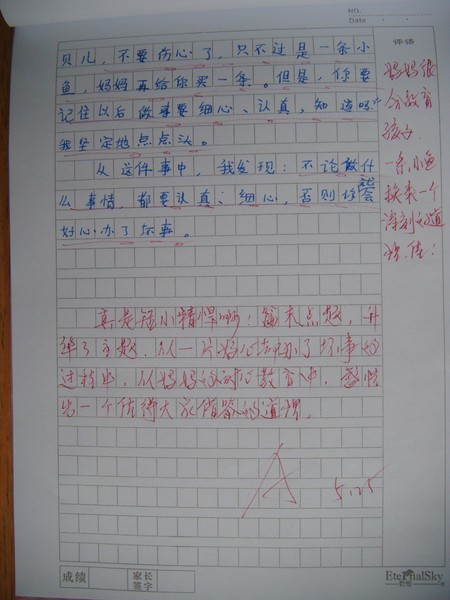 NO.
Date
评语
贝儿，不要伤心了，只不过是一条小
鱼，妈妈再给你买一条。但是，你要
记住以后做事要细心、认真，知道吗？"
我坚定地点点头。
从这件事中，我发现：不论做什
么事情，都要认真、细心，否则你就会
好心办了坏事。
妈妈很
会教育
孩子
一条小鱼
换来一个
深刻的道
真是短小精悍啊！篇末点题，升
华了主题，从一片好心去办了坏事的
过程中，从妈妈的耐心教育中，感悟
出一个值得大家借鉴的道理。
A
5.25
成绩
家长
签字
EternalSky